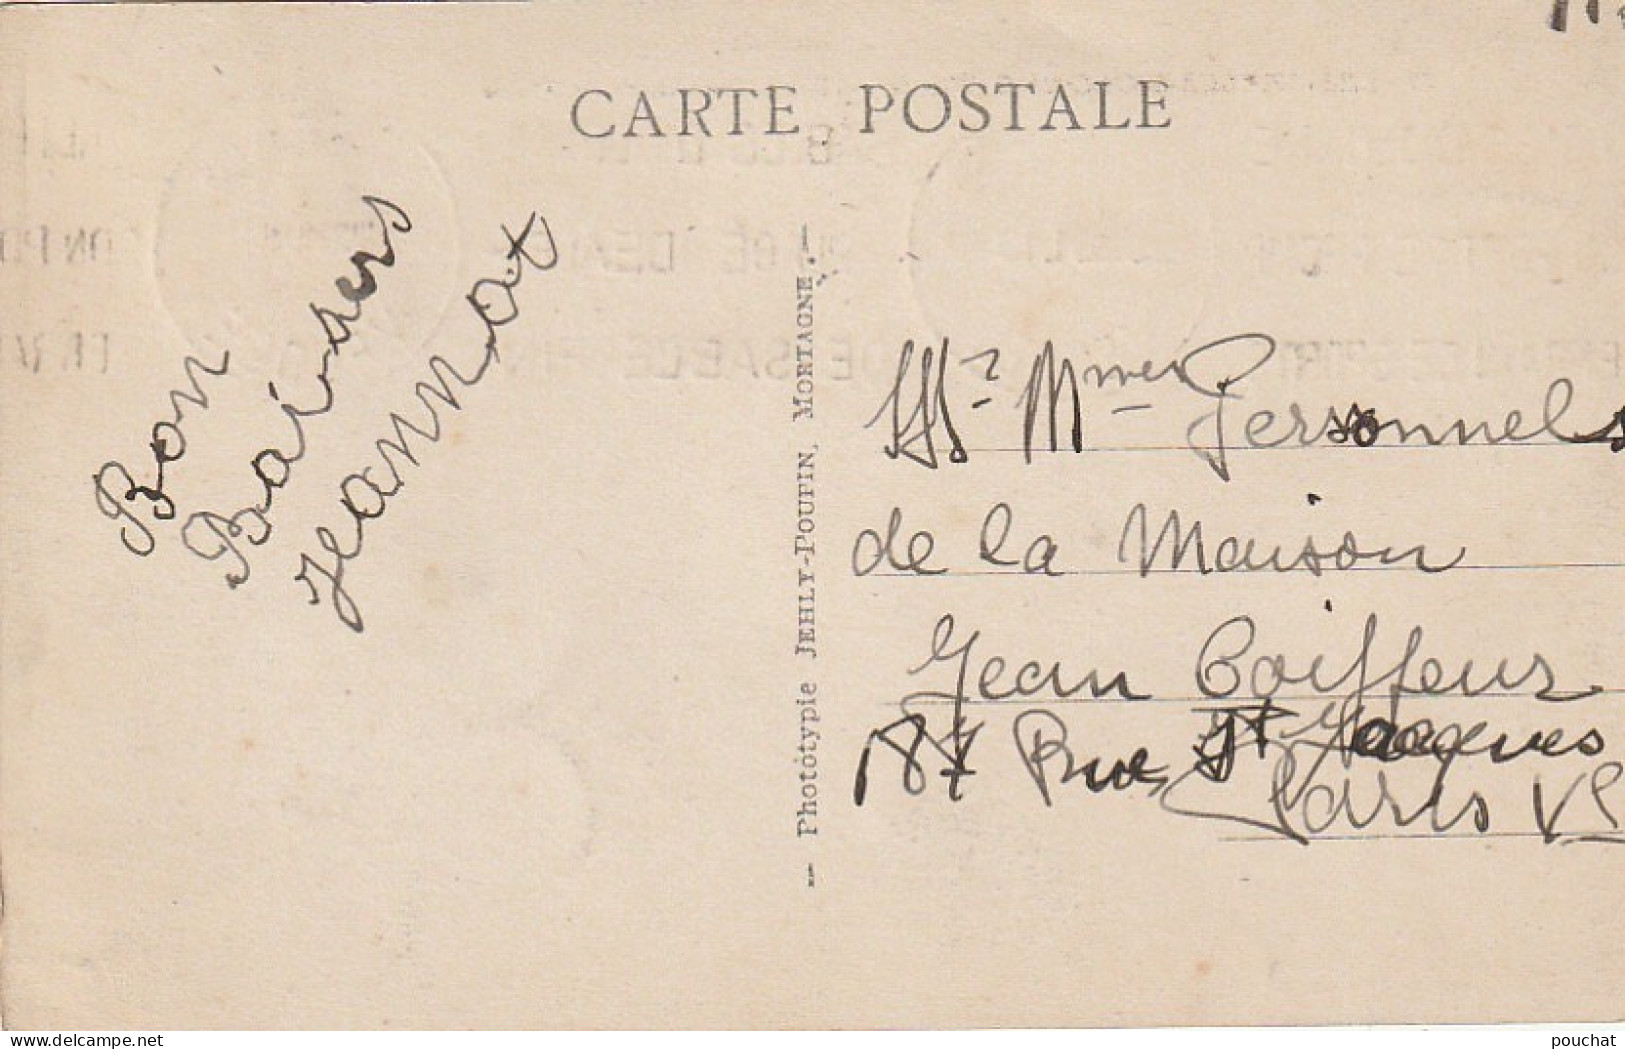 CARTE POSTALE
Bon
Baisers
Jeannot
— Phototypie JEHLY-POUPIN, MORTAGNE. —
Mrs. Mmes Personnels
de la Maison
Jean Coiffeur
187 Rue St Jacques
Paris Ve
pouchat